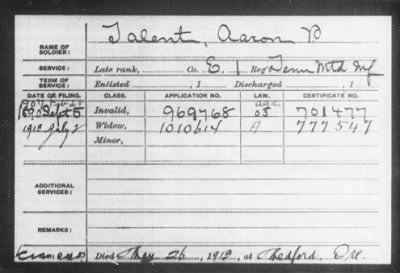 NAME OF SOLDIER: Talent, Aaron P
SERVICE: Late rank, Co. E, 1 Reg't Tenn Mtd Inf
TERM OF SERVICE: Enlisted , 1 Discharged , 1
DATE OF FILING. CLASS. APPLICATION NO. LAW. CERTIFICATE NO.
1890 Sept 5 Invalid, 969768 701477
1912 July 2 Widow, 1010614 A 777547
Minor,
ADDITIONAL SERVICES:
REMARKS:
Died May 26, 1912, at Medford, Ore